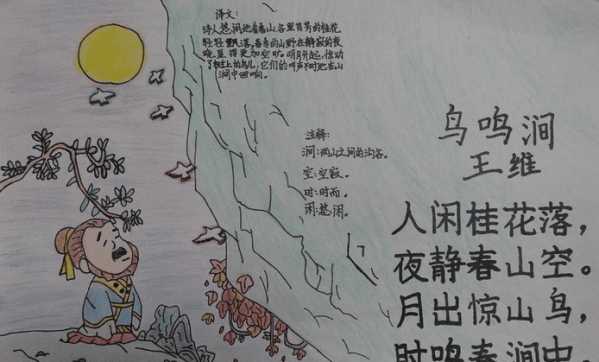 译文:
诗人悠闲地看着山谷里芬芳的桂花
轻轻飘落,春季的山野在静寂的夜
晚显得更加空旷。明月升起,惊动
了树上的鸟儿,它们的叫声不时地在山
涧中回响。
注释:
涧:两山之间的沟谷。
空:空寂。
时:时而。
闲:悠闲。
鸟鸣涧
王维
人闲桂花落,
夜静春山空。
月出惊山鸟,
时鸣春涧中。